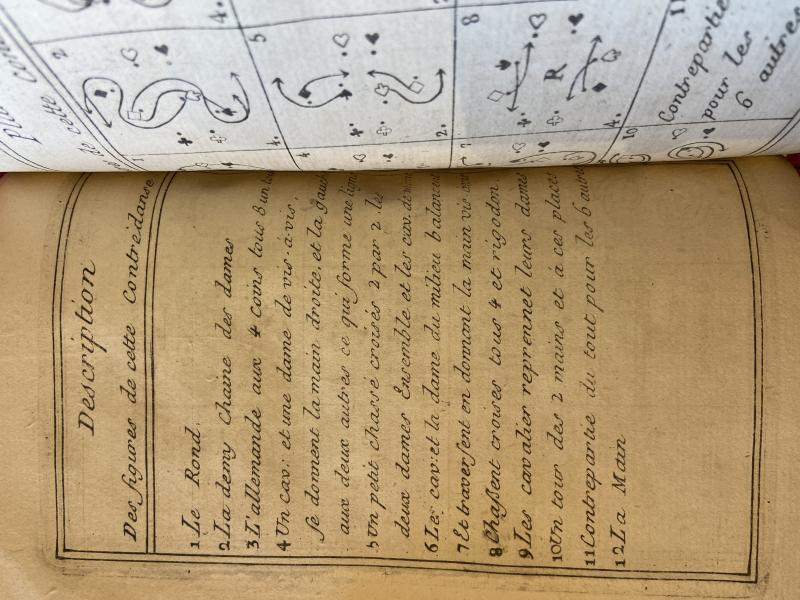 Description
Des figures de cette Contredanse
1 Le Rond.
2 La demy Chaine des dames
3 L'allemande aux 4 Coins tous 8 un
4 Un cav: et une dame de vis-à-vis,
se donnent la main droite, et la gauc
aux deux autres ce qui forme une lign
5 Un petit chassé croisés 2 par 2 les
deux dames Ensemble et les cav. de
6 Les cav: et la dame du milieu balances
7 Et traversent en donnant la main vis
8 Chassent croises tous 4 et rigodon
9 Les cavalier reprennet leurs dames
10 Un tour des 2 mains et à ces places
11 Contrepartie du tout pour les 6 autre
12 La Main
de cette
2
4.
5
4.
4
2.
8
7
R
4.
10
11
Contrepartie
pour les
6 autres